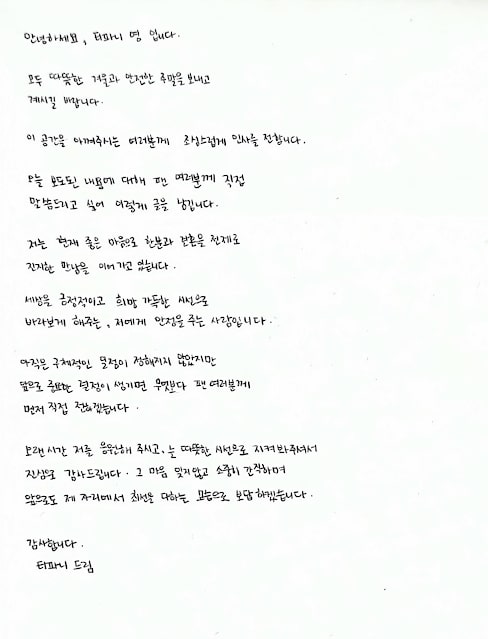 안녕하세요, 티파니 영 입니다.
모두 따뜻한 겨울과 안전한 주말을 보내고
계시길 바랍니다.
이 공간을 아껴주시는 여러분께 조심스럽게 인사를 전합니다.
오늘 보도된 내용에 대해 팬 여러분께 직접
말씀드리고 싶어 이렇게 글을 남깁니다.
저는 현재 좋은 마음으로 한분과 결혼을 전제로
진지한 만남을 이어가고 있습니다.
세상을 긍정적이고 희망 가득한 시선으로
바라보게 해주는, 저에게 안정을 주는 사람입니다.
아직은 구체적인 일정이 정해지지 않았지만
앞으로 중요한 결정이 생기면 무엇보다 팬 여러분께
먼저 직접 전하겠습니다.
오랜시간 저를 응원해 주시고, 늘 따뜻한 시선으로 지켜봐주셔서
진심으로 감사드립니다. 그 마음 잊지않고 소중히 간직하며
앞으로도 제 자리에서 최선을 다하는 모습으로 보답하겠습니다.
감사합니다.
티파니 드림